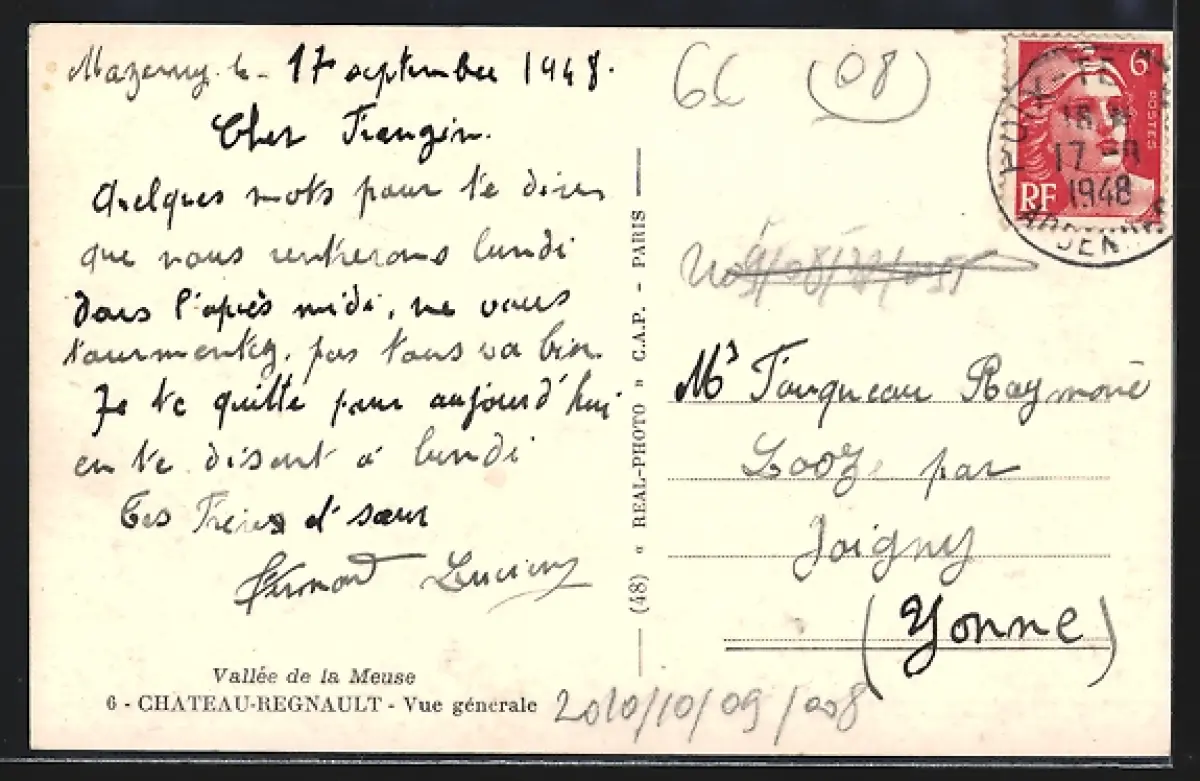 Mazerny le 17 septembre 1948.
Cher Frangin.
Quelques mots pour te dire
que nous rentrerons lundi
dans l'après midi, ne vous
tourmentez pas tous va bien.
Je te quitte pour aujourd'hui
en te disant à lundi
Tes Frères et sœur
Fernand Lucienne
Vallée de la Meuse
6 - CHATEAU-REGNAULT - Vue générale
2010/10/09/008
(48) « REAL-PHOTO » C.A.P. - PARIS
6€ (08)
6
POSTES
RF
POIX-TE
18 H
17 -9
1948
ARDENNES
Mr Fouqueau Raymond
Looze par
Joigny
(Yonne)